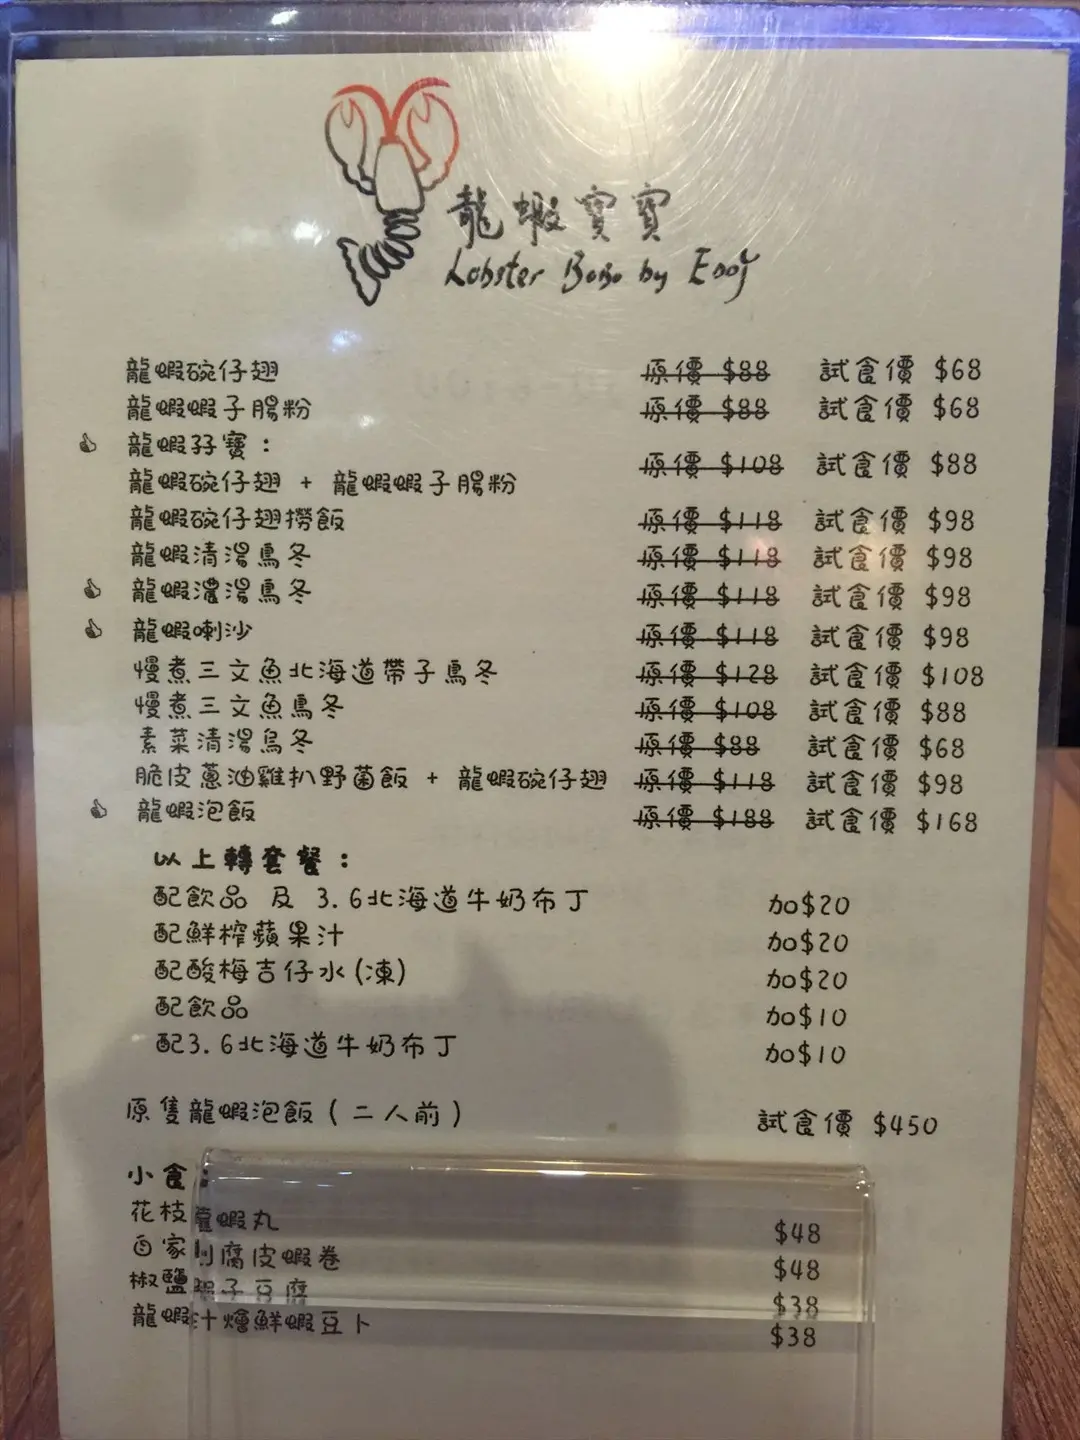 龍蝦寶寶
Lobster BoBo by Eddy
龍蝦碗仔翅 原價 $88 試食價 $68
龍蝦蝦子腸粉 原價 $88 試食價 $68
👍 龍蝦孖寶：
龍蝦碗仔翅 + 龍蝦蝦子腸粉 原價 $108 試食價 $88
龍蝦碗仔翅撈飯 原價 $118 試食價 $98
龍蝦清湯烏冬 原價 $118 試食價 $98
👍 龍蝦濃湯烏冬 原價 $118 試食價 $98
👍 龍蝦喇沙 原價 $118 試食價 $98
慢煮三文魚北海道帶子烏冬 原價 $128 試食價 $108
慢煮三文魚烏冬 原價 $108 試食價 $88
素菜清湯烏冬 原價 $88 試食價 $68
脆皮蔥油雞扒野菌飯 + 龍蝦碗仔翅 原價 $118 試食價 $98
👍 龍蝦泡飯 原價 $188 試食價 $168
以上轉套餐：
配飲品 及 3.6北海道牛奶布丁 加$20
配鮮榨蘋果汁 加$20
配酸梅吉仔水(凍) 加$20
配飲品 加$10
配3.6北海道牛奶布丁 加$10
原隻龍蝦泡飯(二人前) 試食價 $450
小食：
花枝龍蝦丸 $48
自家制腐皮蝦卷 $48
椒鹽蝦子豆腐 $38
龍蝦汁燴鮮蝦豆卜 $38